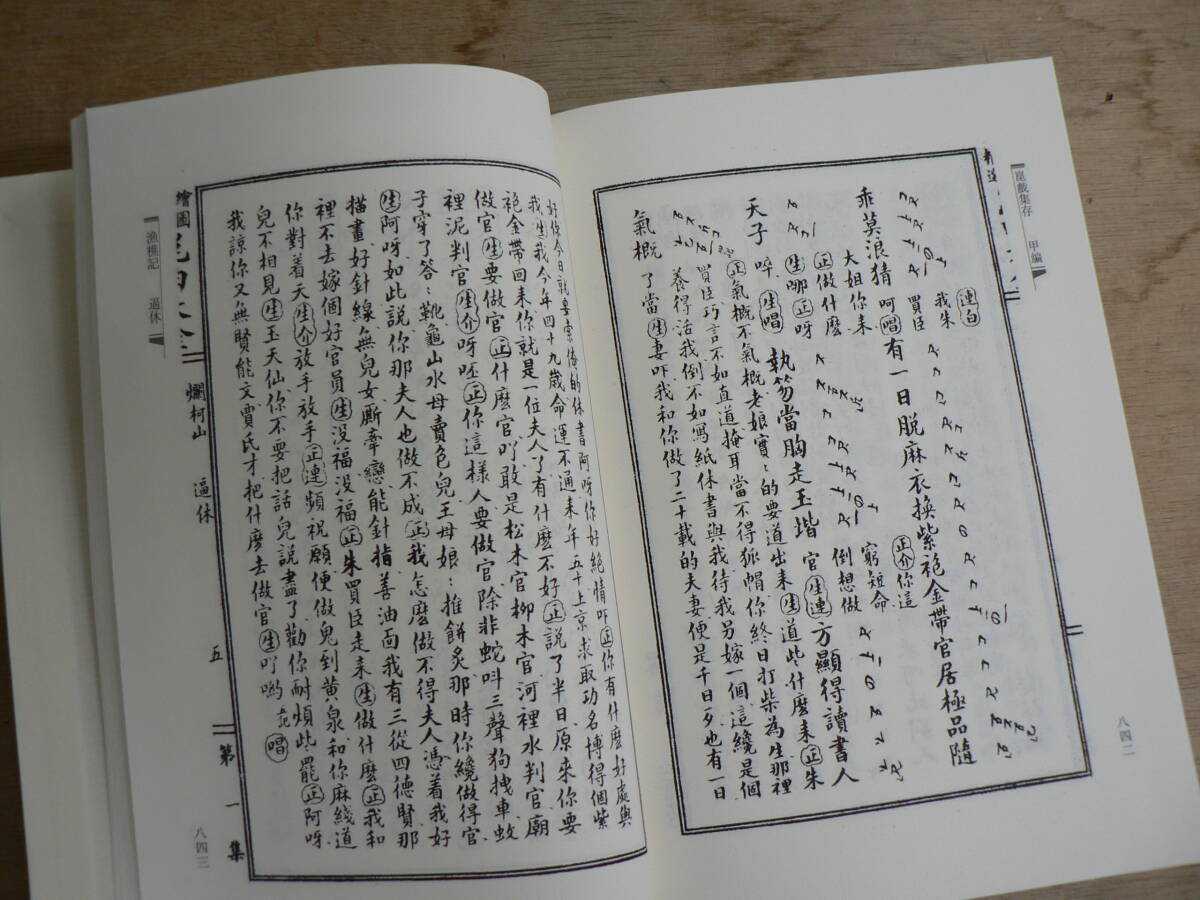 崑戲集存 甲編
八四二
連白
我朱
乖莫浪猜
買臣
呵唱有一日脫麻衣換紫袍金帶官居極品隨
大姐你來
正介你這
正做什麼
窮短命
生哪正呀
倒想做
天子 啐生唱 執笏當胸走玉堦 官生連方顯得讀書人
正氣概不氣概老娘實〻的要道出來生道些什麽來正朱
買臣巧言不如直道掩耳當不得狐帽你終日打柴為生那裡
養得活我倒不如寫紙休書與我待我另嫁一個這纔是個
氣概
了當生妻吓我和你做了二十載的夫妻便是千日歹也有一日
好你今日就要索俺的休書阿呀你好絕情吓正你有什麽好處與
我生我今年四十九歲命運不通來年五十上京求取功名博得個紫
袍金帶回來你就是一位夫人了有什麽不好正說了半日原來你要
做官生要做官正什麽官吖敢是松木官柳木官河裡水判官廟
裡泥判官生介呀呸正你這樣人要做官除非蛇叫三聲狗拽車蚊
子穿了答〻靴龜山水母賣色兒王母娘〻推餅炙那時你纔做得官
生阿呀如此說你那夫人也做不成正我怎麽做不得夫人憑着我好
描畫好針線無兒女廝牽戀能針指善油面我有三從四德賢那
裡不去嫁個好官員生没福没福正朱買臣走來生做什麽正我和
你對着天生介放手放手正連頻祝願便做鬼到黄泉和你麻綫道
兒不相見生玉天仙你不要把話兒說盡了勸你耐煩此罷正阿呀
我諒你又無賢能文賈氏才把什麽去做官生吖喲 唱
繪圖
爛柯山 逼休
五
第一集
漁樵記 逼休
八四三